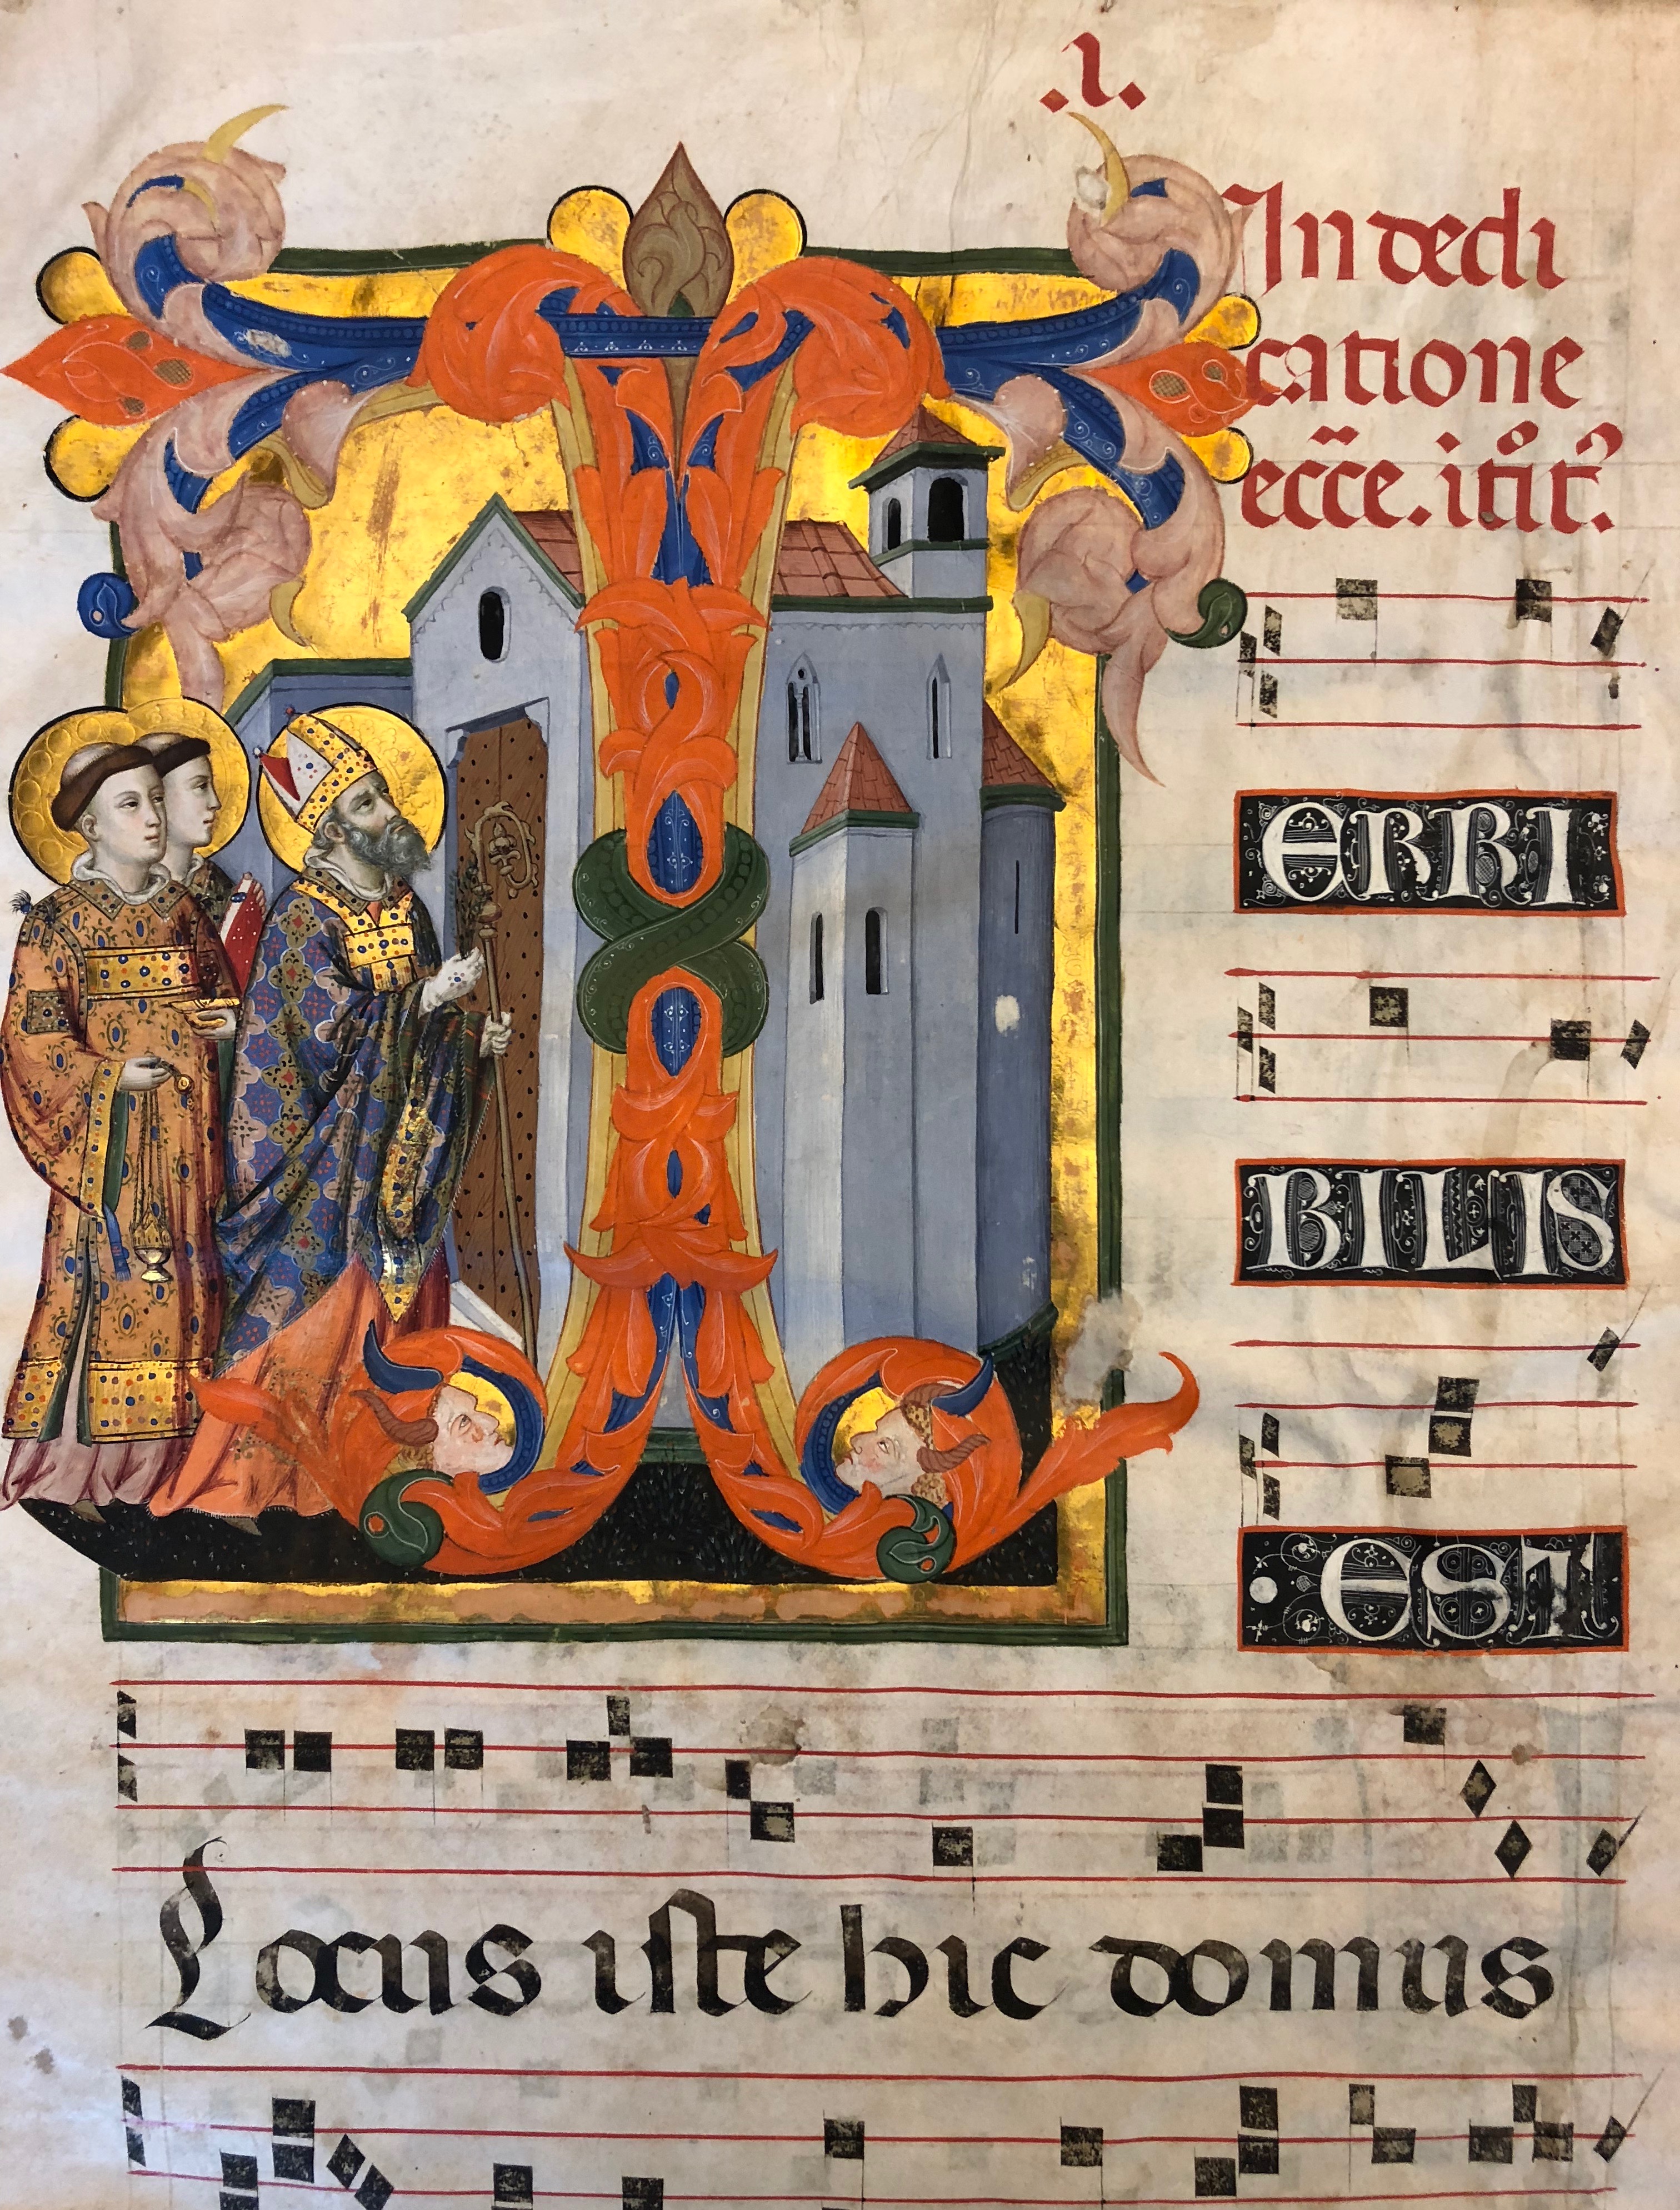 .1.
In dedi
catione
ecc̄e. itr̄t.
T
ERRI
BILIS
EST
Locus iste hic domus